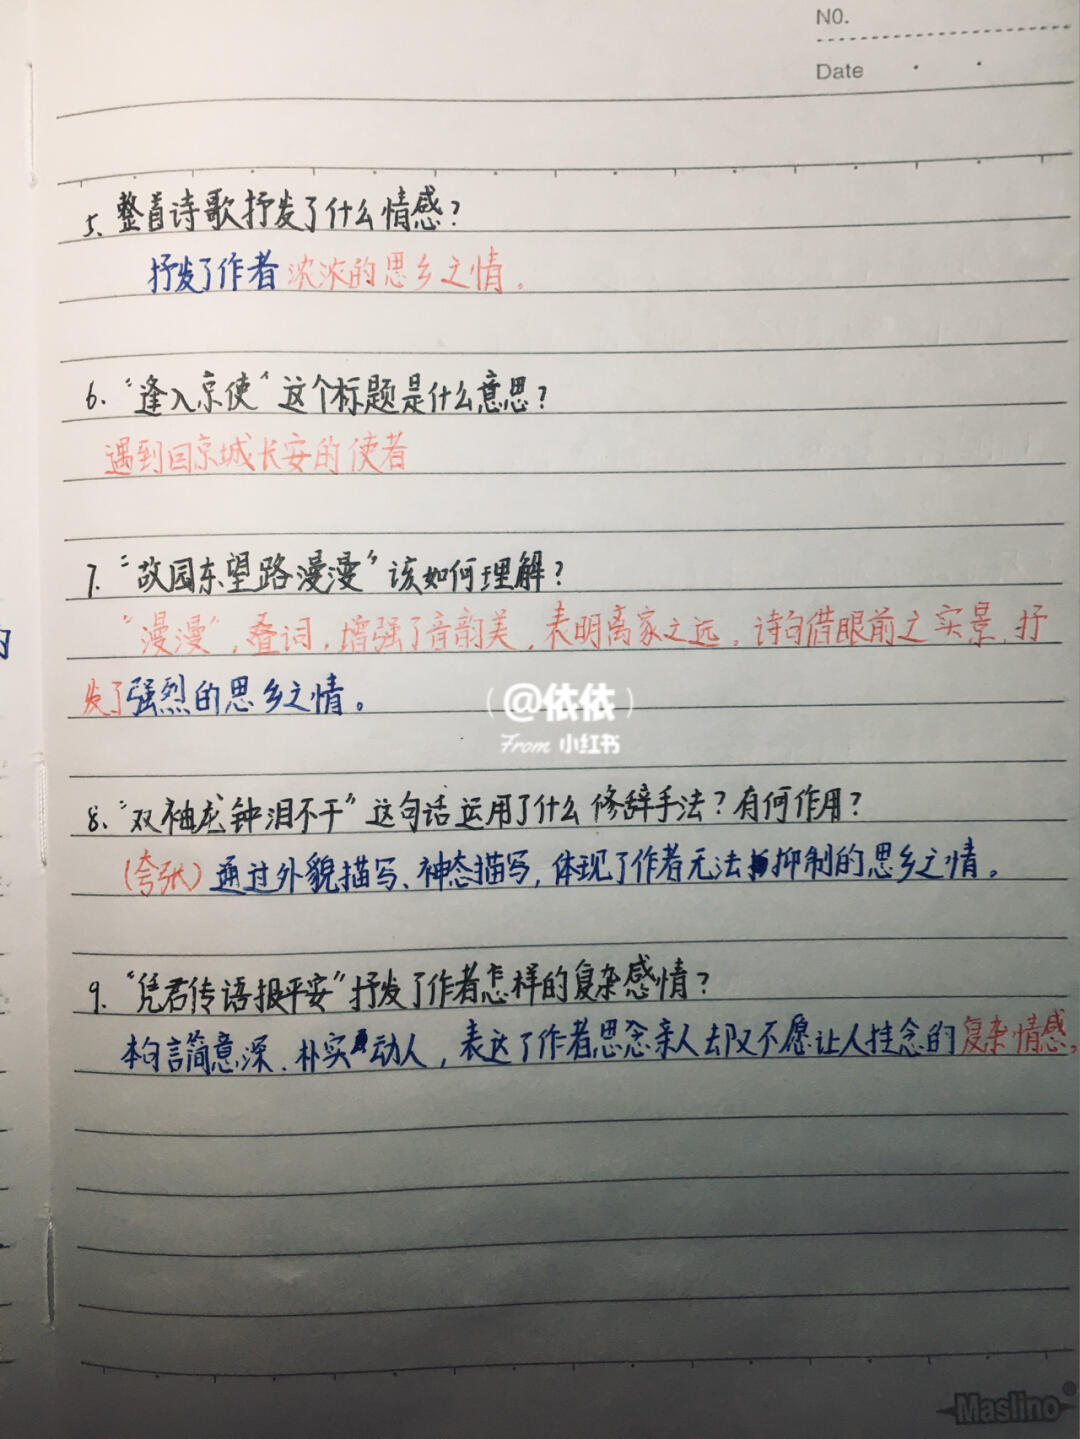 NO.
Date
5、整首诗歌抒发了什么情感？
抒发了作者浓浓的思乡之情。
6、“逢入京使”这个标题是什么意思？
遇到回京城长安的使者
7、“故园东望路漫漫”该如何理解？
“漫漫”，叠词，增强了音韵美，表明离家之远，诗句借眼前之实景，抒
发了强烈的思乡之情。
(@依依)
From 小红书
8、“双袖龙钟泪不干”这句话运用了什么修辞手法？有何作用？
(夸张)通过外貌描写、神态描写，体现了作者无法抑制的思乡之情。
9、“凭君传语报平安”抒发了作者怎样的复杂感情？
本句言简意深、朴实动人，表达了作者思念亲人却又不愿让人挂念的复杂情感。
Maslino